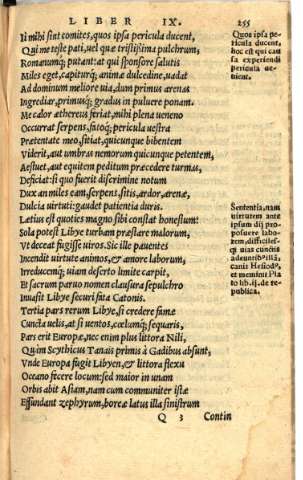 LIBER IX.
255
Ii mihi sint comites, quos ipsa pericula ducent,
Qui me teste pati, uel quæ tristissima pulchrum,
Romanumq; putant: at qui sponsore salutis
Miles eget, capiturq; animæ dulcedine, uadat
Ad dominum meliore uia, dum primus arenas
Ingrediar, primusq; gradus in puluere ponam.
Me calor æthereus feriat, mihi plena ueneno
Occurrat serpens, fatoq; pericula uestra
Prætentate meo, sitiat, quicunque bibentem
Viderit, aut umbras nemorum quicunque petentem,
Aestuet, aut equitem peditum præcedere turmas,
Deficiat: si quo fuerit discrimine notum
Dux an miles eam, serpens, sitis, ardor, arenæ,
Dulcia uirtuti: gaudet patientia duris.
Lætius est quoties magno sibi constat honestum:
Sola potest Libye turbam præstare malorum,
Vt deceat fugisse uiros. Sic ille pauentes
Incendit uirtute animos, et amore laborum,
Irreducemq; uiam deserto limite carpit,
Et sacrum paruo nomen clausura sepulchro
Inuasit Libye securi fata Catonis.
Tertia pars rerum Libye, si credere famæ
Cuncta uelis, at si uentos, cœlumq; sequaris,
Pars erit Europæ, nec enim plus littora Nili,
Quàm Scythicus Tanais primis à Gadibus absunt,
Vnde Europa fugit Libyen, et littora flexu
Oceano fecere locum: sed maior in unam
Orbis abit Asiam, nam cum communiter istæ
Effundant zephyrum, boreæ latus illa sinistrum
Q 3 Contin
Quos ipsa pe
ricula ducent,
hoc est qui cau
sa experiendi
pericula ue-
nient.
Sententia, nam
uirtutem ante
ipsum dij pro-
posuere labo-
rem, difficilesq́
q; uias cunctis
adeuntib' illā,
canit Hesiod',
et meminit Pla
to lib. ij. de re-
publica.